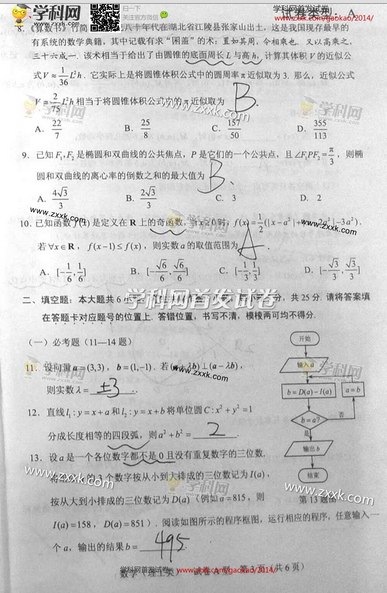 试卷类型:A
8. 《算数书》竹简于上世纪八十年代在湖北省江陵县张家山出土,这是我国现存最早的
有系统的数学典籍,其中记载有求“囷盖”的术:置如其周,令相乘也,又以高乘之,
三十六成一. 该术相当于给出了由圆锥的底面周长L与高h,计算其体积V的近似公
式V≈1/36 L²h. 它实际上是将圆锥体积公式中的圆周率π近似取为3. 那么,近似公式
V≈2/75 L²h相当于将圆锥体积公式中的π近似取为
B
A. 22/7 B. 25/8 C. 157/50 D. 355/113
9. 已知F₁,F₂是椭圆和双曲线的公共焦点,P是它们的一个公共点,且∠F₁PF₂=π/3,则椭
圆和双曲线的离心率的倒数之和的最大值为
B
A. 4√3/3 B. 2√3/3 C. 3 D. 2
10. 已知函数f(x)是定义在R上的奇函数,当x≥0时,f(x)=1/2(|x-a²|+|x-2a²|-3a²).
若∀x∈R,f(x-1)≤f(x),则实数a的取值范围为
A
A. [-1/6,1/6] B. [-√6/6,√6/6] C. [-1/3,1/3] D. [-√3/3,√3/3]
学科网首发试卷
二、填空题:本大题共6小题,考生共需作答5小题,每小题5分,共25分.请将答案填
在答题卡对应题号的位置上.答错位置,书写不清,模棱两可均不得分.
(一)必考题(11—14题)
11. 设向量a=(3,3),b=(1,-1). 若(a+λb)⊥(a-λb),
则实数λ= ±3 .
12. 直线l₁:y=x+a和l₂:y=x+b将单位圆C:x²+y²=1
分成长度相等的四段弧,则a²+b²= 2 .
13. 设a是一个各位数字都不是0且没有重复数字的三位数.
将组成a的3个数字按从小到大排成的三位数记为I(a),
按从大到小排成的三位数记为D(a)(例如a=815,则
I(a)=158,D(a)=851). 阅读如图所示的程序框图,运行相应的程序,任意输入一
个a,输出的结果b= 495 .
开始
输入a
b=D(a)-I(a)
a=b
b=a?
否
是
输出b
结束
第13题图
数学(理工类) 试卷A型 第3页(共6页)
学科网
www.zxxk.com
www.zxxk.com/gaokao/2014/